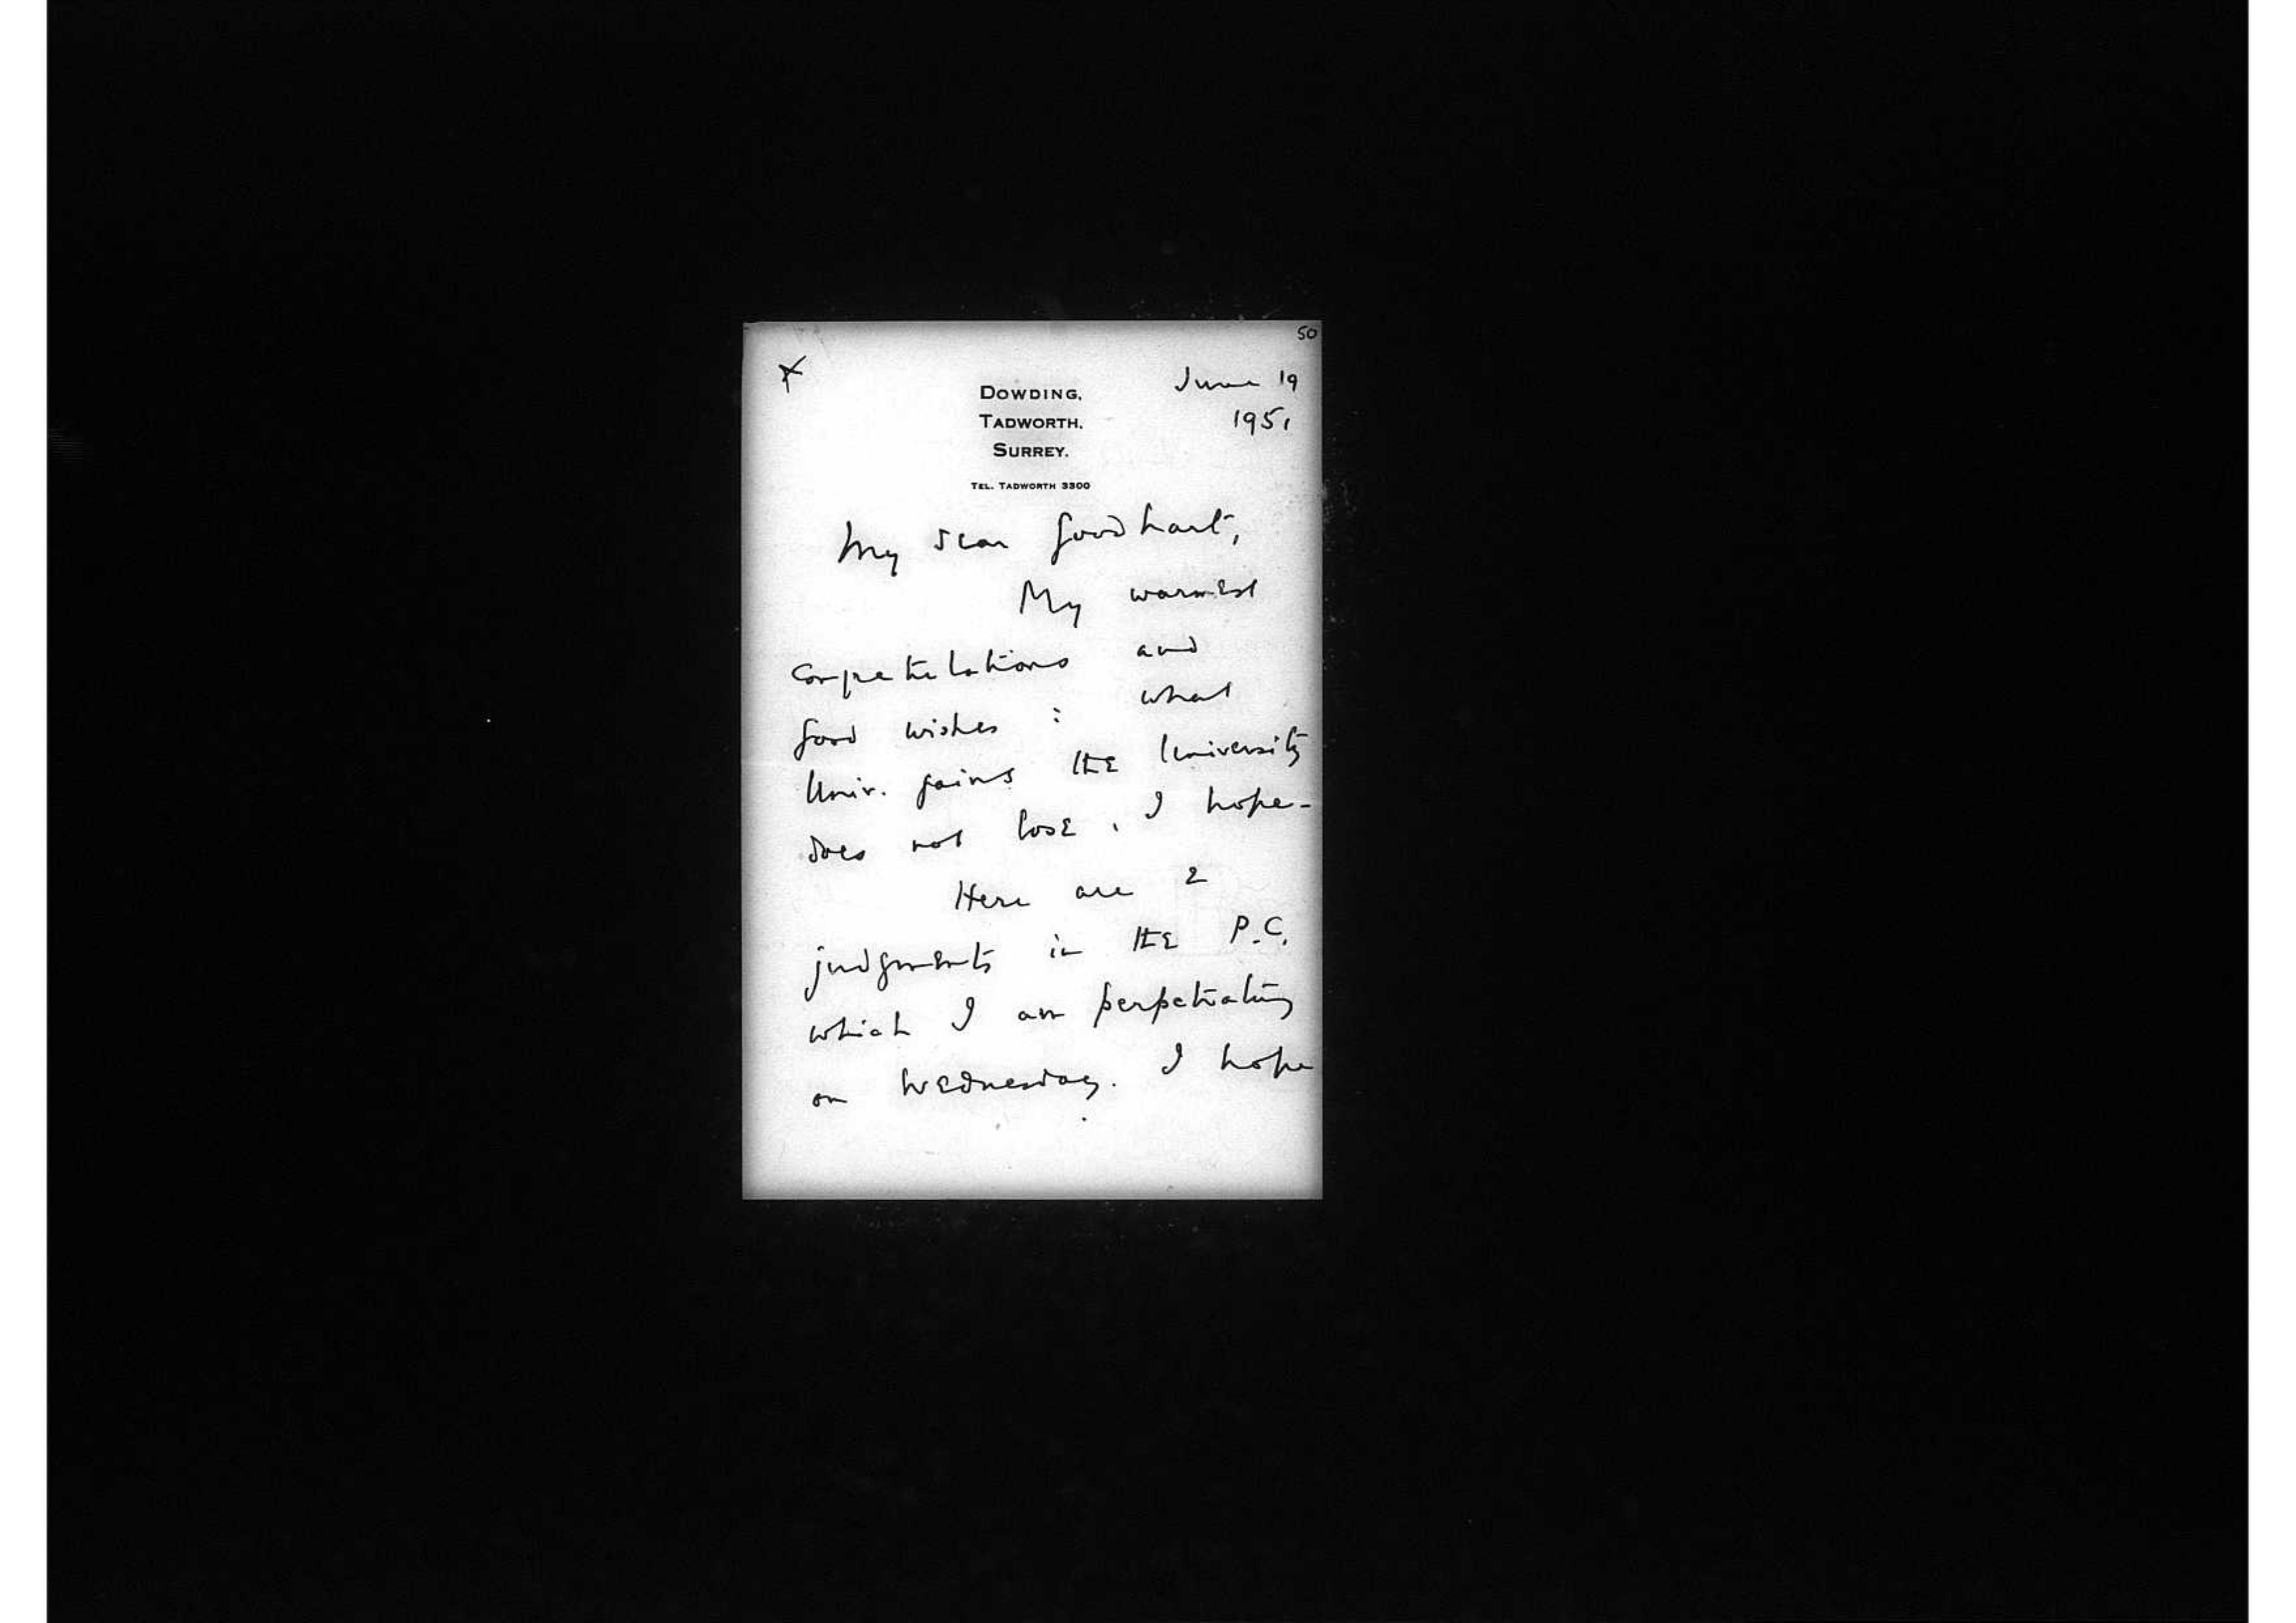 50
June 19
1951
DOWDING,
TADWORTH,
SURREY.
TEL. TADWORTH 3300
My dear Goodhart,
My warmest
congratulations and
good wishes : what
Univ. gains the University
does not lose, I hope-
Here are 2
judgments in the P.C.
which I am perpetrating
on Wednesday. I hope